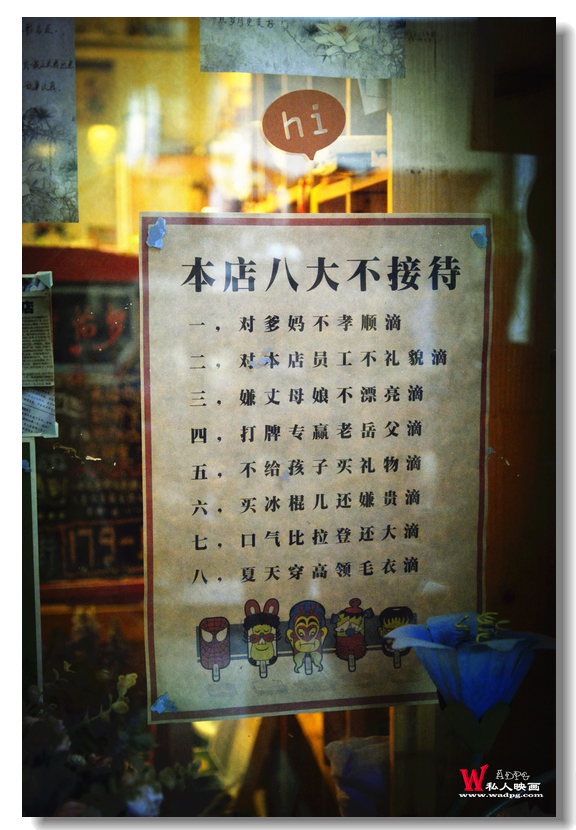 hi
本店八大不接待
一，对爹妈不孝顺滴
二，对本店员工不礼貌滴
三，嫌丈母娘不漂亮滴
四，打牌专赢老岳父滴
五，不给孩子买礼物滴
六，买冰棍儿还嫌贵滴
七，口气比拉登还大滴
八，夏天穿高领毛衣滴
W ADPG
私人映画
www.wadpg.com